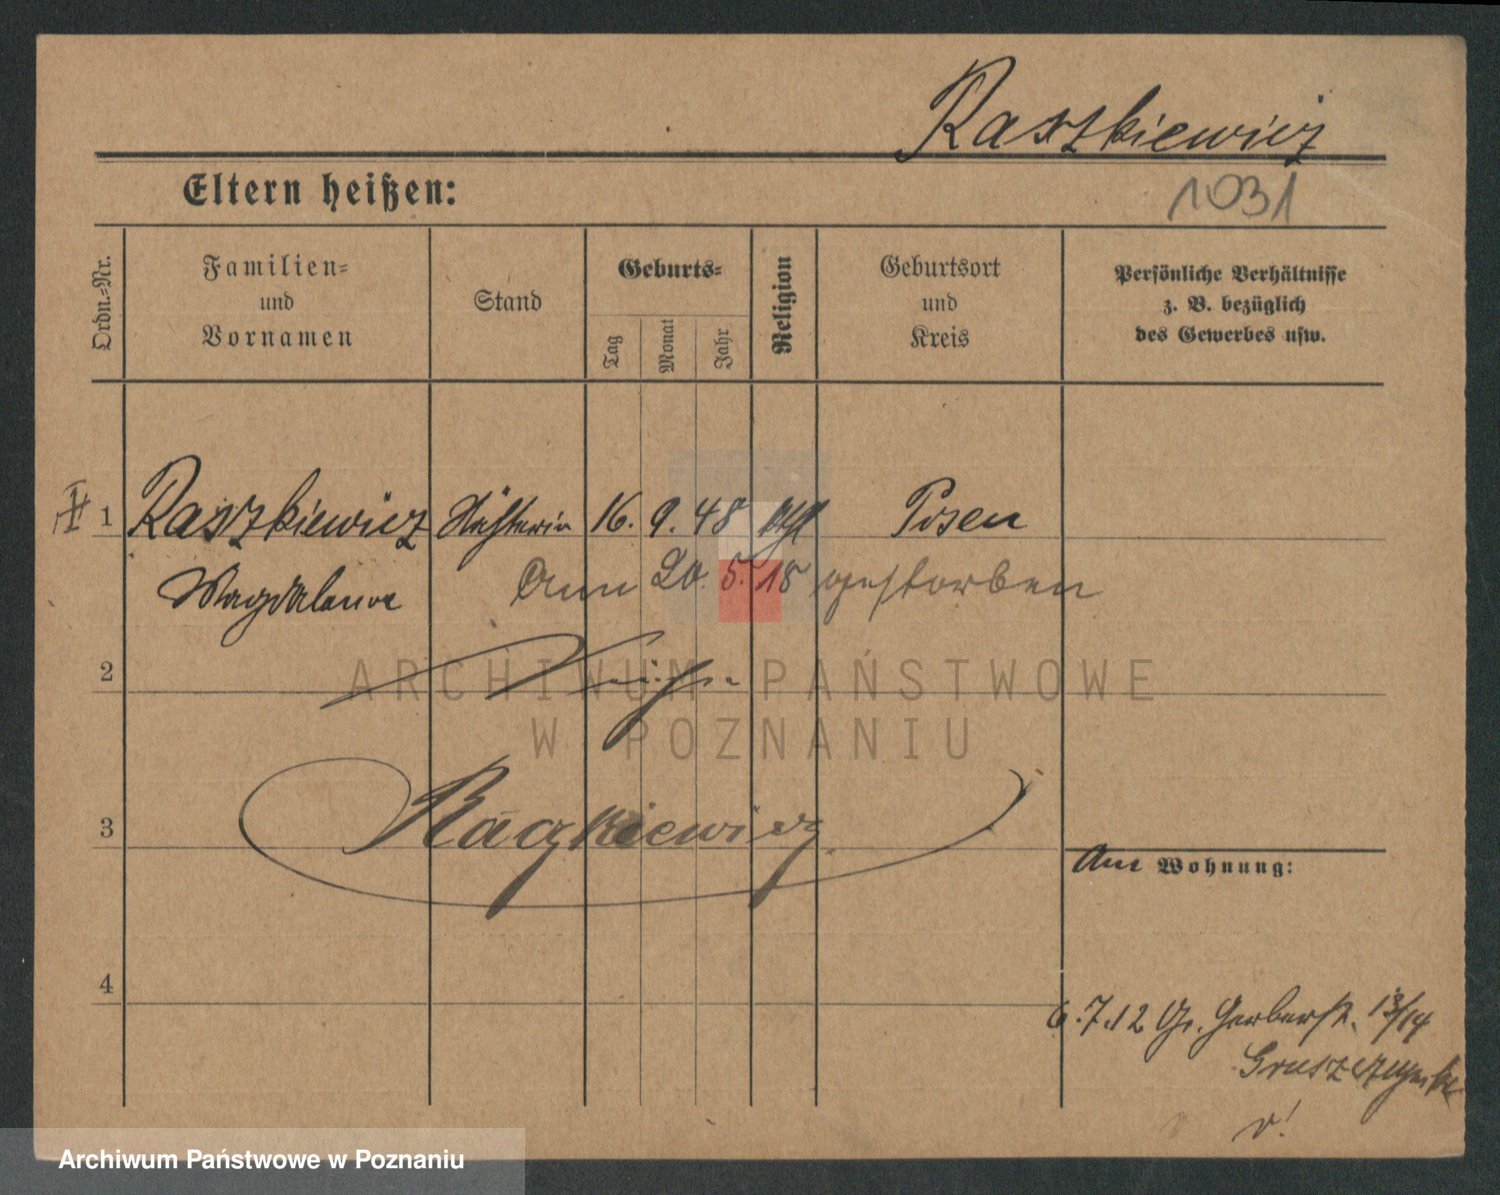 Raszkiewicz
Eltern heißen:
1031
Ordn.-Nr.
Familien-
und
Vornamen
Stand
Geburts-
Tag
Monat
Jahr
Religion
Geburtsort
und
Kreis
Persönliche Verhältnisse
z. B. bezüglich
des Gewerbes usw.
1 Raszkiewicz Nähterin 16. 9. 48 kth Posen
Magdalena
Am 20. 5. 18 gestorben
2
ARCHIWUM PAŃSTWOWE
W POZNANIU
3
4
Wohnung:
6.7.12 Gr. Gerberstr. 13/14
v!
Archiwum Państwowe w Poznaniu